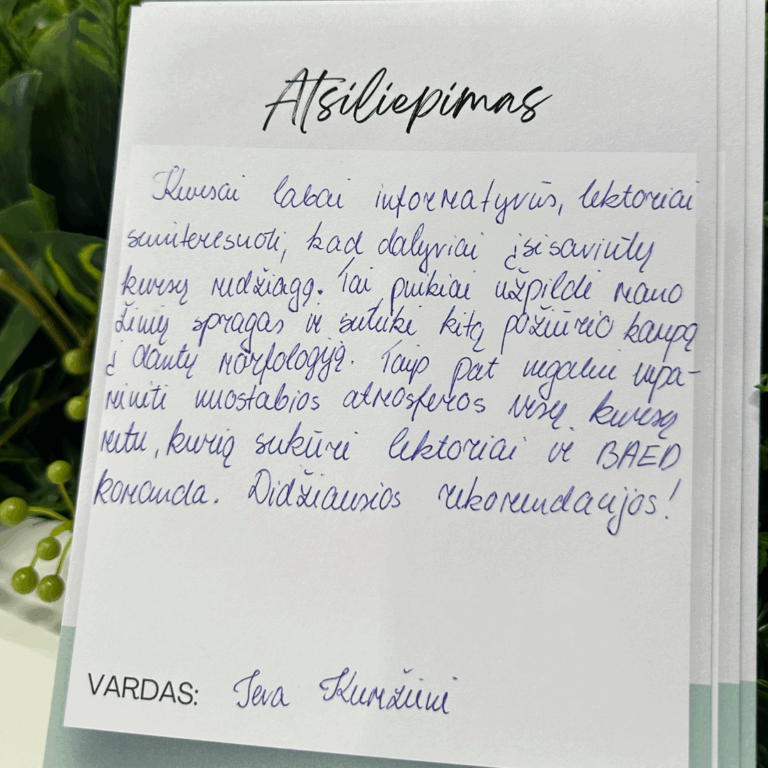 Atsiliepimas
Kursai labai informatyvūs, lektoriai
suinteresuoti, kad dalyviai įsisavintų
kursų medžiagą. Tai puikiai užpildė mano
žinių spragas ir suteikė kitą požiūrio kampą
į dantų morfologiją. Taip pat negaliu nepa-
minėti nuostabios atmosferos visų kursų
metu, kurią sukūrė lektoriai ir BAED
komanda. Didžiausios rekomendacijos!
VARDAS: Ieva